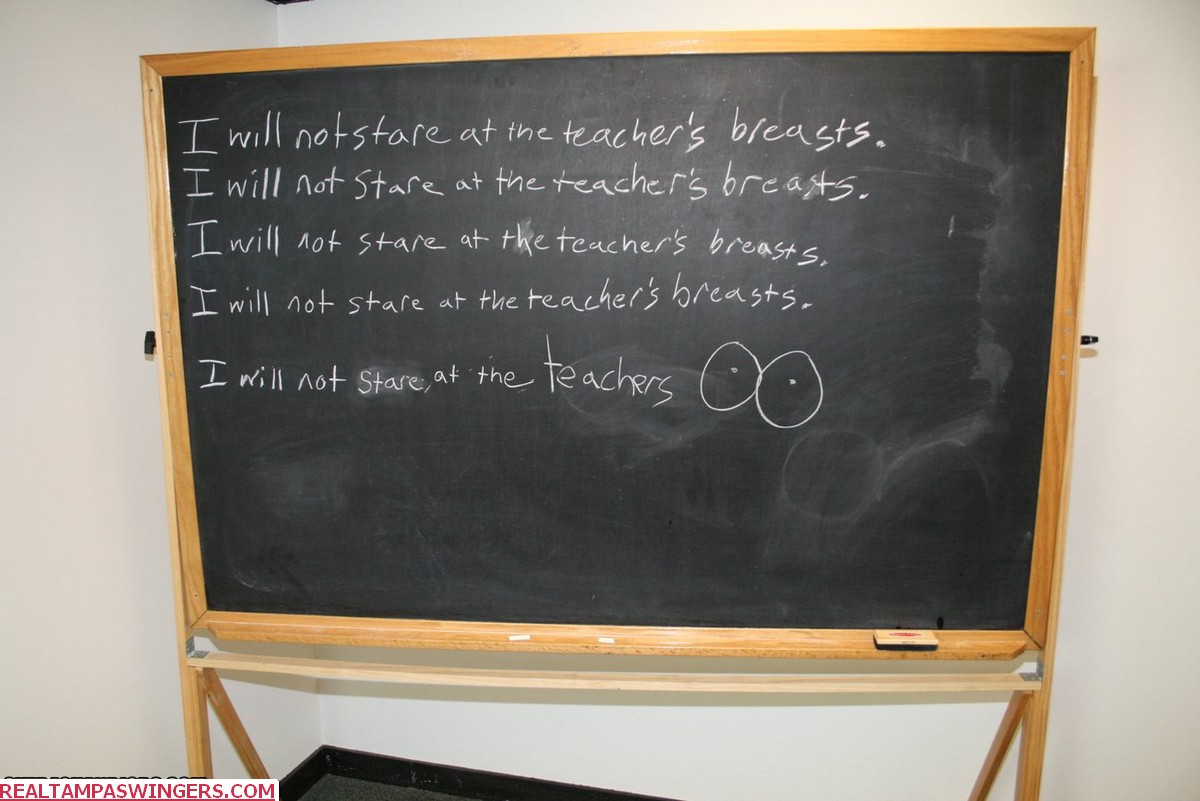 I will not stare at the teacher's breasts.
I will not stare at the teacher's breasts.
I will not stare at the teacher's breasts.
I will not stare at the teacher's breasts.
I will not stare at the teachers
REALTAMPASWINGERS.COM